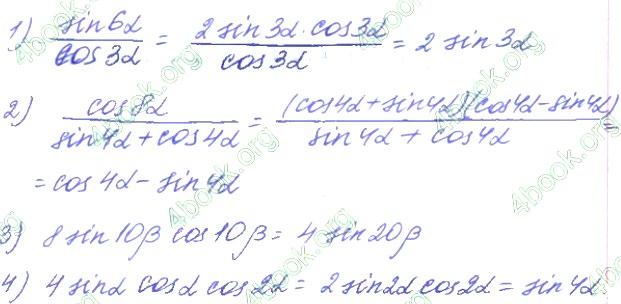 1) sin6α/cos3α = 2sin3α·cos3α/cos3α = 2 sin3α
2) cos8α/sin4α+cos4α = (cos4α+sin4α)(cos4α-sin4α)/sin4α+cos4α =
= cos4α - sin4α
3) 8sin10β cos10β = 4sin20β
4) 4sinα cosα cos2α = 2sin2α cos2α = sin4α
4book.org